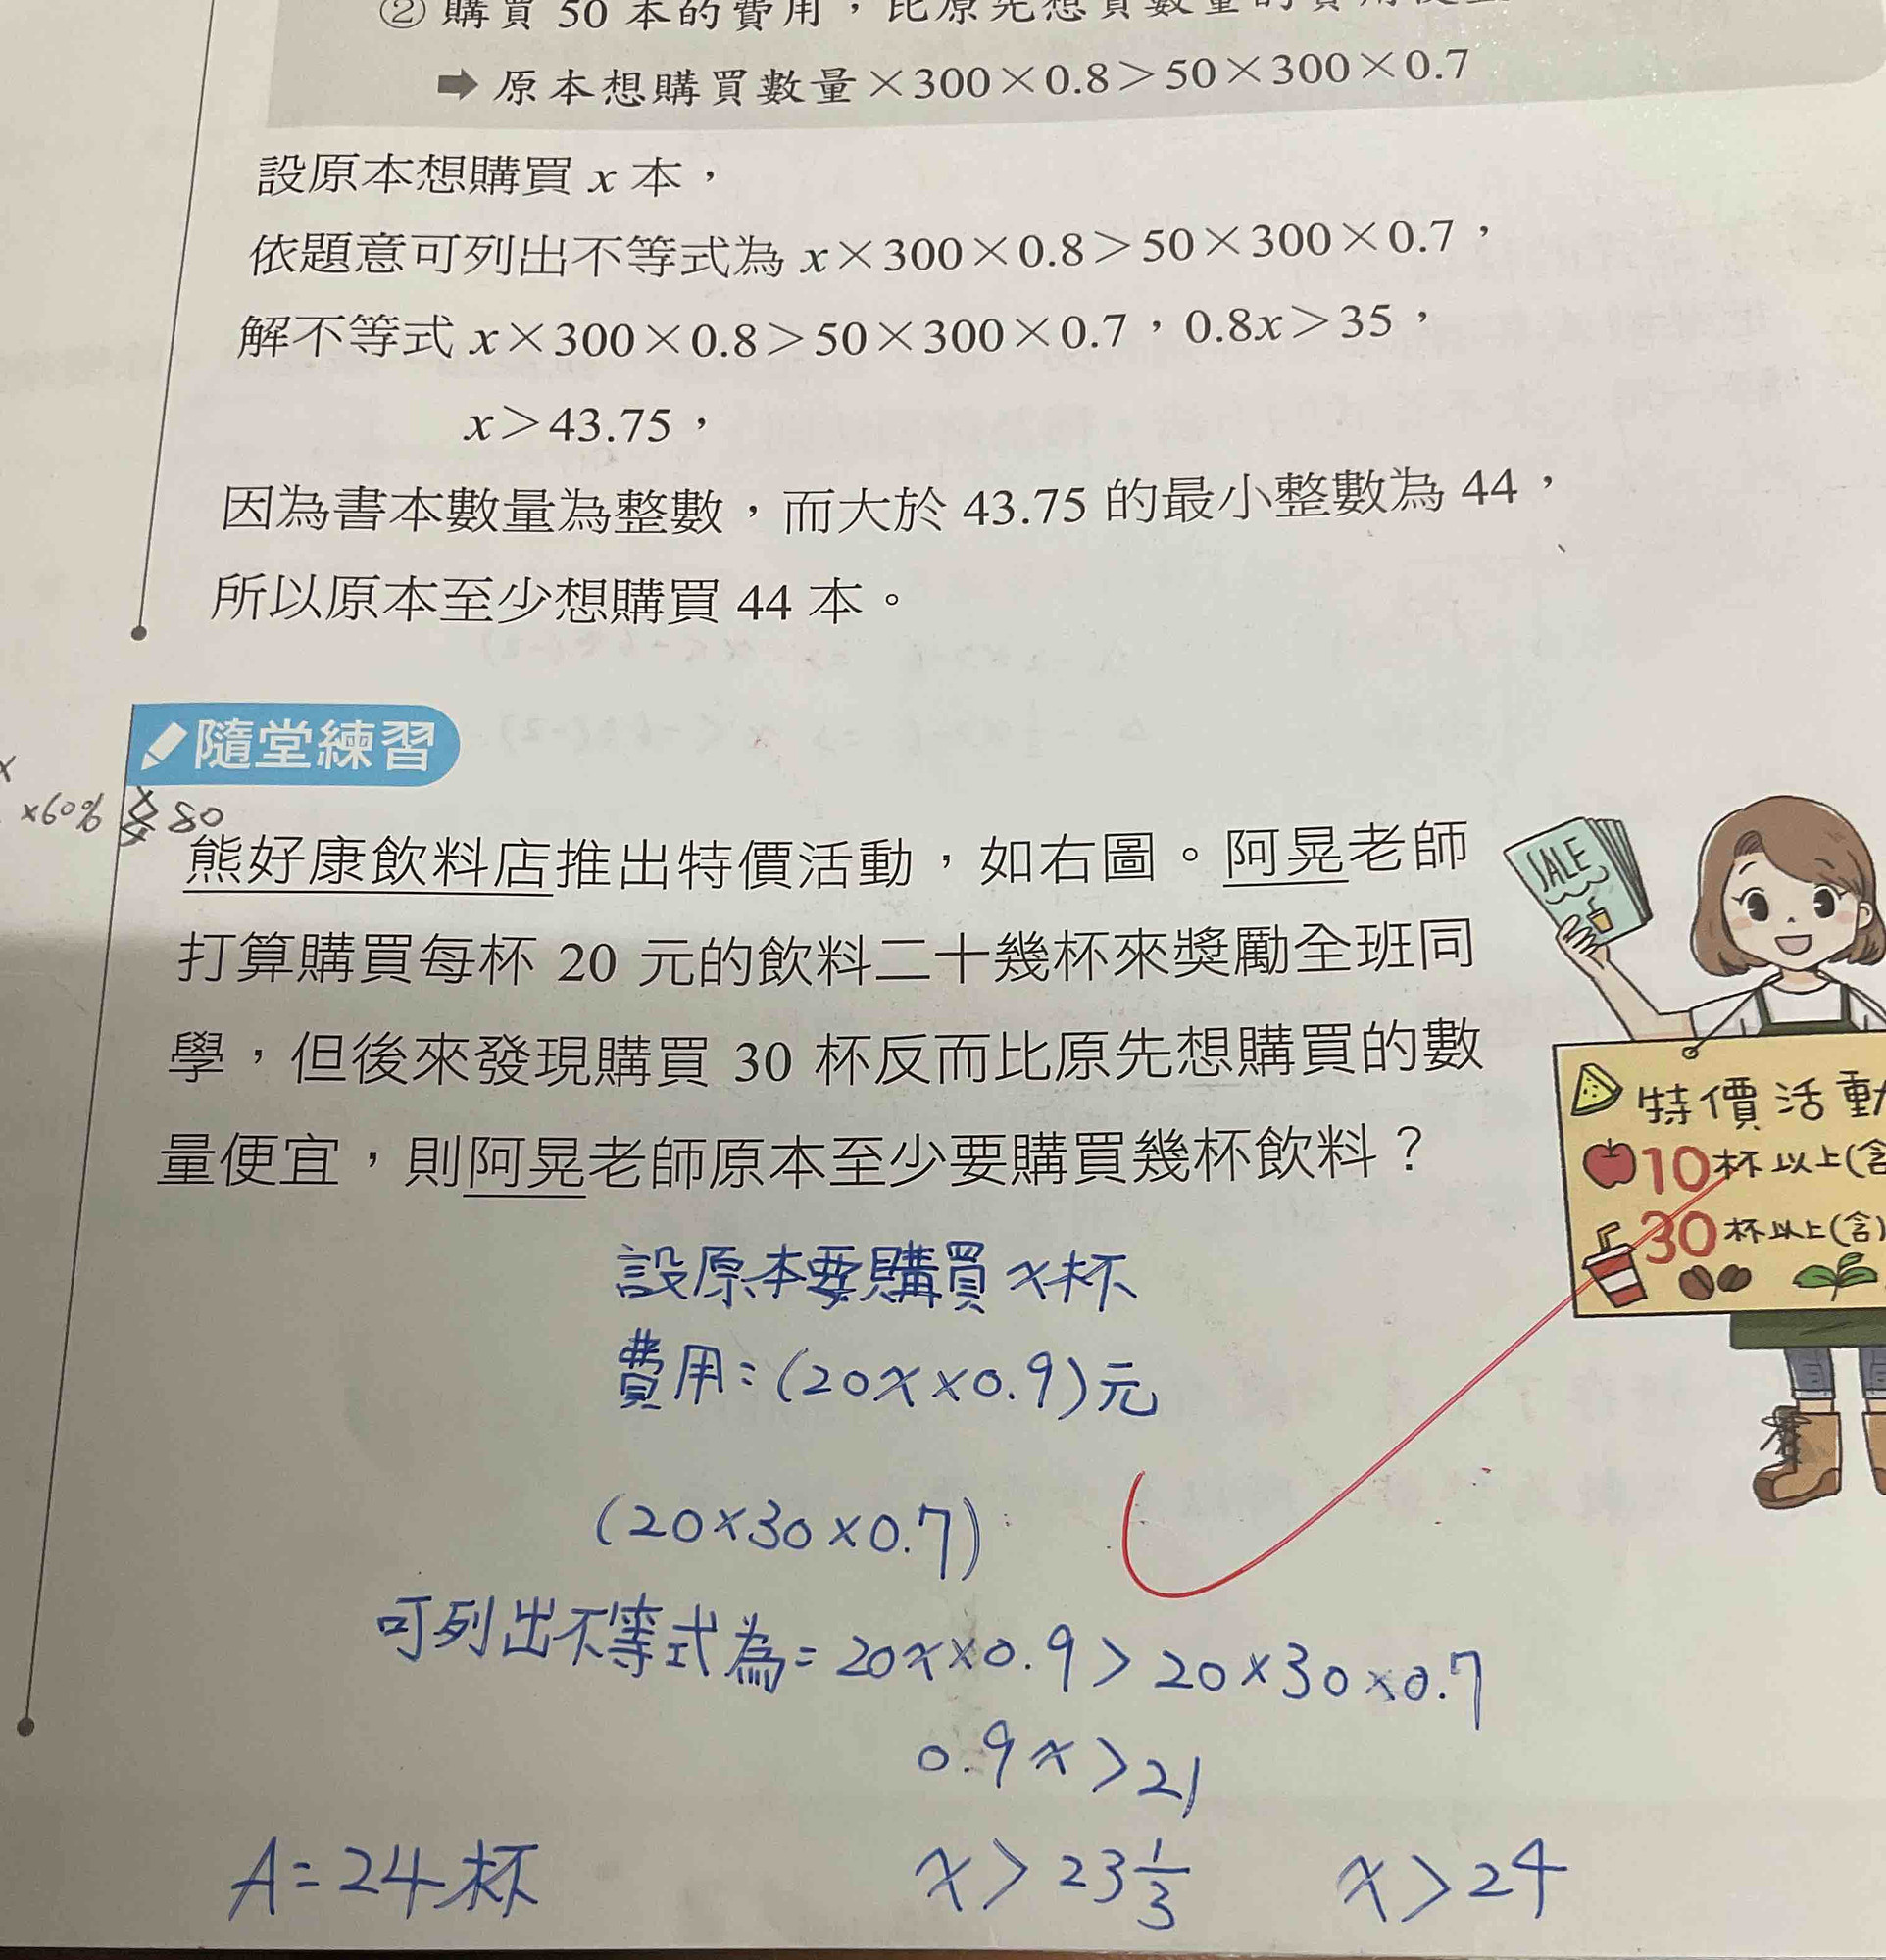 ② 購買 50 本的費用,比原先想買數量的費用便宜
➡ 原本想購買數量×300×0.8>50×300×0.7
設原本想購買 x 本,
依題意可列出不等式為 x×300×0.8>50×300×0.7,
解不等式 x×300×0.8>50×300×0.7,0.8x>35,
x>43.75,
因為書本數量為整數,而大於 43.75 的最小整數為 44,
所以原本至少想購買 44 本。
隨堂練習
x
×60% 80
熊好康飲料店推出特價活動,如右圖。阿晃老師
打算購買每杯 20 元的飲料二十幾杯來獎勵全班同
學,但後來發現購買 30 杯反而比原先想購買的數
量便宜,則阿晃老師原本至少要購買幾杯飲料?
SALE
特價活動
10杯以上(含
30杯以上(含)
設原本要購買x杯
費用:(20x×0.9)元
(20×30×0.7)
可列出不等式為=20x×0.9>20×30×0.7
0.9x>21
x>23 1/3 x>24
A=24杯